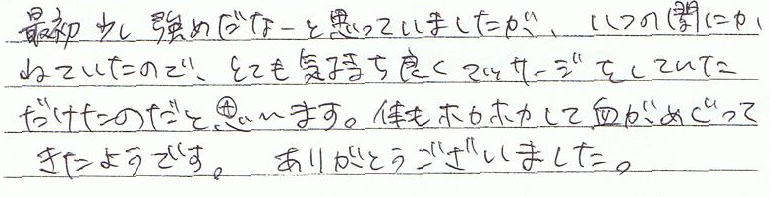 最初少し強めだなーと思っていましたが、いつの間にか
ねていたので、とても気持ち良くマッサージをしていた
だけたのだと思います。体もホカホカして血がめぐって
きたようです。 ありがとうございました。